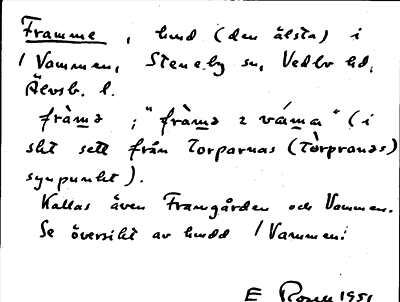 Framme, hmd (den älsta) i
/ Vammen, Steneby sn, Vedbo hd,
Älvsb. l.
fràmə ; "fràmə 2 váma" (i
sht sett från Torparnas (Tòrpranas)
synpunkt).
Kallas även Framgården och Vammen.
Se översikt av hmdd / Vammen!
E 1951